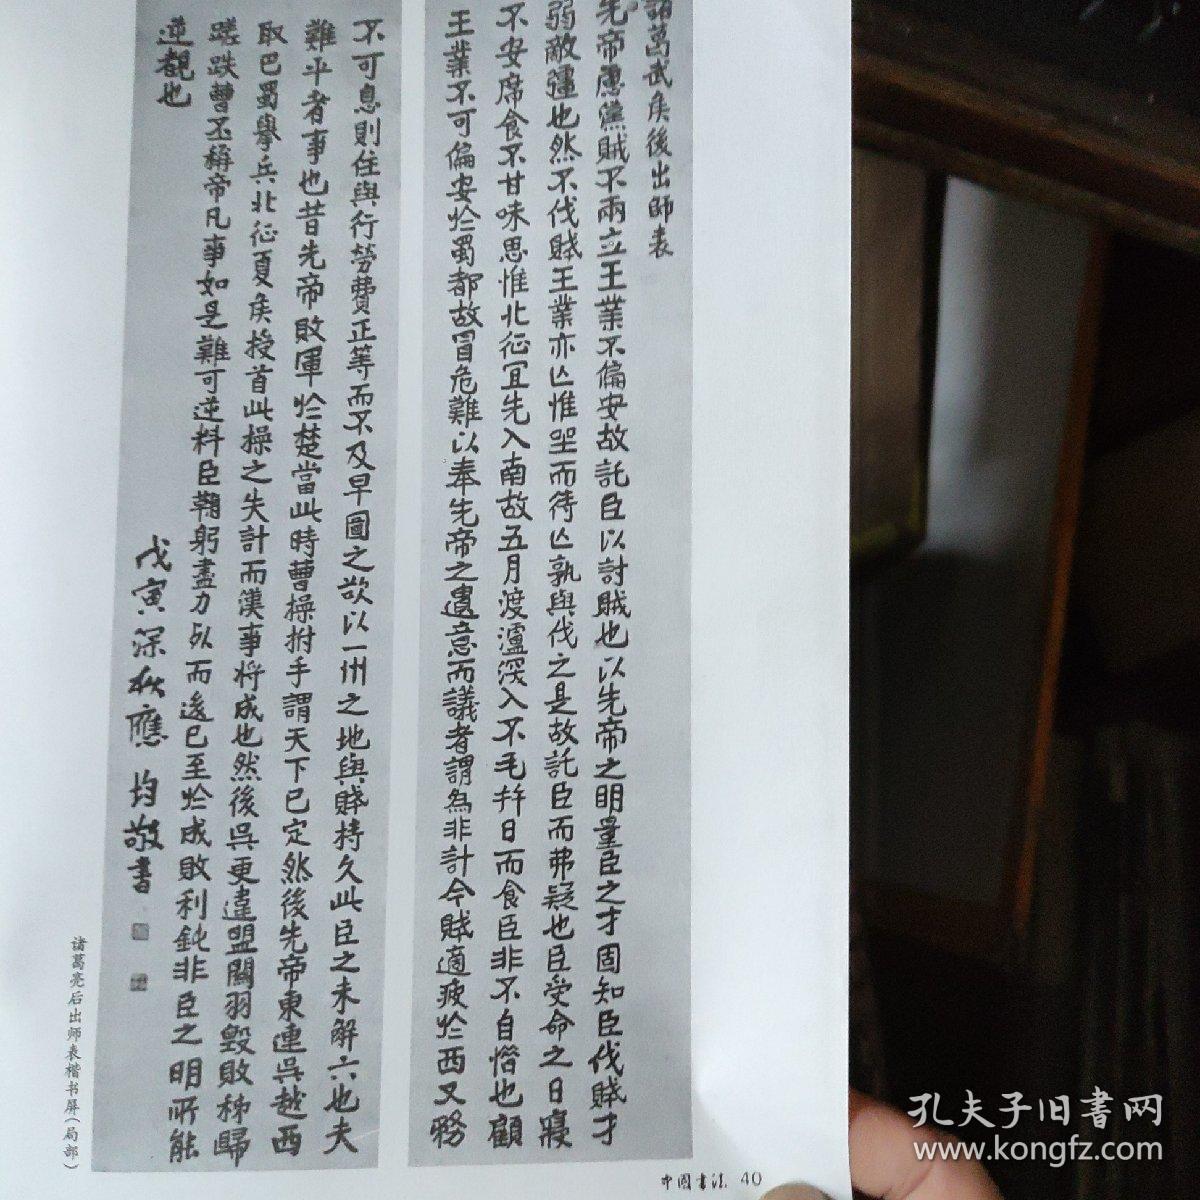 諸葛武矦後出師表
先帝慮漢賊不兩立王業不偏安故託臣以討賊也以先帝之明量臣之才固知臣伐賊才
弱敵彊也然不伐賊王業亦亾惟坐而待亾孰與伐之是故託臣而弗疑也臣受命之日寢
不安席食不甘味思惟北征宜先入南故五月渡瀘深入不毛并日而食臣非不自惜也顧
王業不可偏安於蜀都故冒危難以奉先帝之遺意而議者謂為非計今賊適疲於西又務
不可息則住與行勞費正等而不及早圖之欲以一州之地與賊持久此臣之未解六也夫
難平者事也昔先帝敗軍於楚當此時曹操拊手謂天下已定然後先帝東連吳越西
取巴蜀舉兵北征夏矦授首此操之失計而漢事將成也然後吳更違盟關羽毀敗秭歸
蹉跌曹丕稱帝凡事如是難可逆料臣鞠躬盡力死而後已至於成敗利鈍非臣之明所能
逆覩也
戊寅深秋應均敬書
诸葛亮后出师表楷书屏（局部）
中國書法 40
孔夫子旧書网
www.kongfz.com